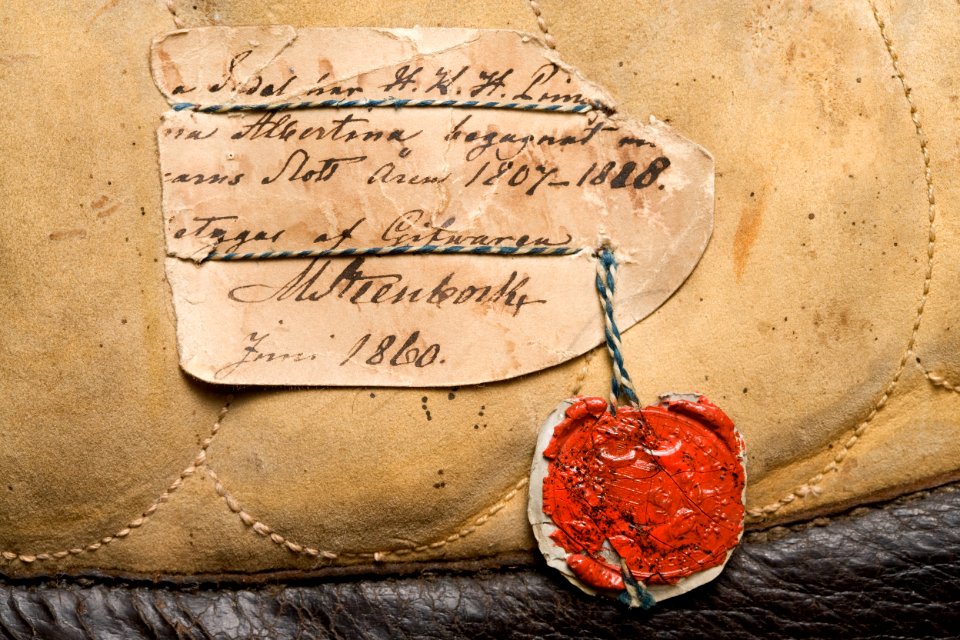 a Sadel har H. K. H. Prins
na Albertina begagnat
arns Slott åren 1807–1828.
etygas af Gifwaren
MSteenbock
Juni 1860.